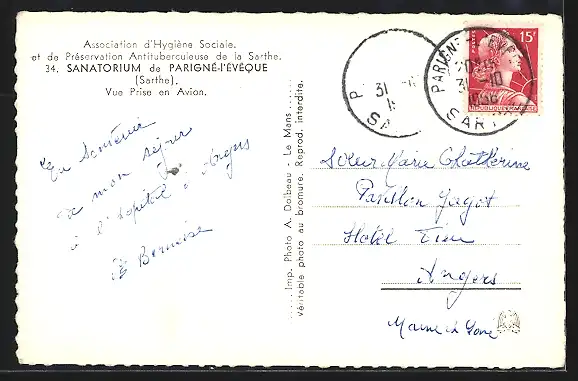 Association d'Hygiène Sociale.
et de Préservation Antituberculeuse de la Sarthe.
34. SANATORIUM de PARIGNÉ-l'ÉVÊQUE
(Sarthe).
Vue Prise en Avion.
En Souvenir
de mon séjour
à l'hopital d'Angers
..... Imp. Photo A. Dolbeau - Le Mans .....
véritable photo au bromure. Reprod. interdite.
15F
POSTES
RÉPUBLIQUE FRANÇAISE
31
31 - 10
1956
Soeur Marie Chatherine
Pavillon Jagot
Hotel Dieu
Angers
Maine et Loire